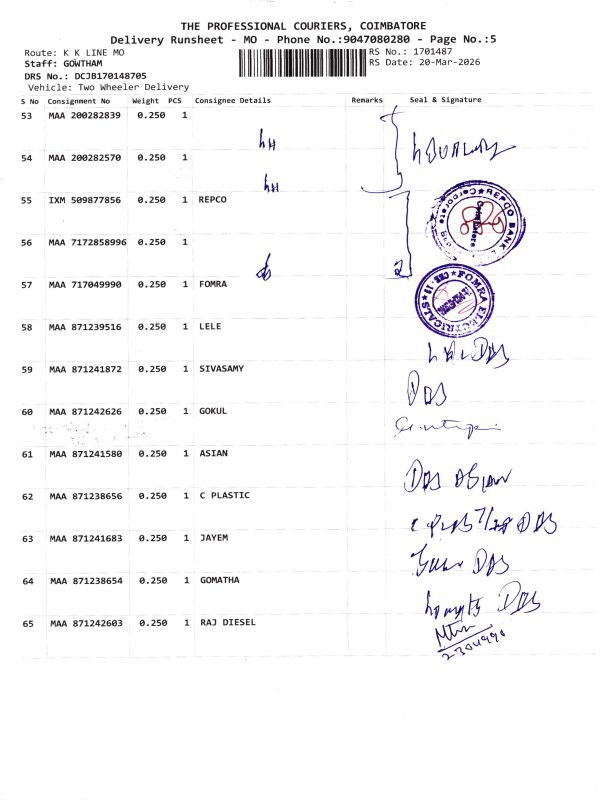 THE PROFESSIONAL COURIERS, COIMBATORE
Delivery Runsheet - MO - Phone No.:9047080280 - Page No.:5
Route: K K LINE MO
RS No.: 1701487
Staff: GOWTHAM
RS Date: 20-Mar-2026
DRS No.: DCJB170148705
Vehicle: Two Wheeler Delivery
S No Consignment No Weight PCS Consignee Details Remarks Seal & Signature
53 MAA 200282839 0.250 1
54 MAA 200282570 0.250 1
55 IXM 509877856 0.250 1 REPCO
REPCO BANK
Corporate
56 MAA 7172858996 0.250 1
57 MAA 717049990 0.250 1 FOMRA
FOMRA ELECTRICALS
CBE-18
58 MAA 871239516 0.250 1 LELE
59 MAA 871241872 0.250 1 SIVASAMY
60 MAA 871242626 0.250 1 GOKUL
61 MAA 871241580 0.250 1 ASIAN
62 MAA 871238656 0.250 1 C PLASTIC
63 MAA 871241683 0.250 1 JAYEM
64 MAA 871238654 0.250 1 GOMATHA
65 MAA 871242603 0.250 1 RAJ DIESEL